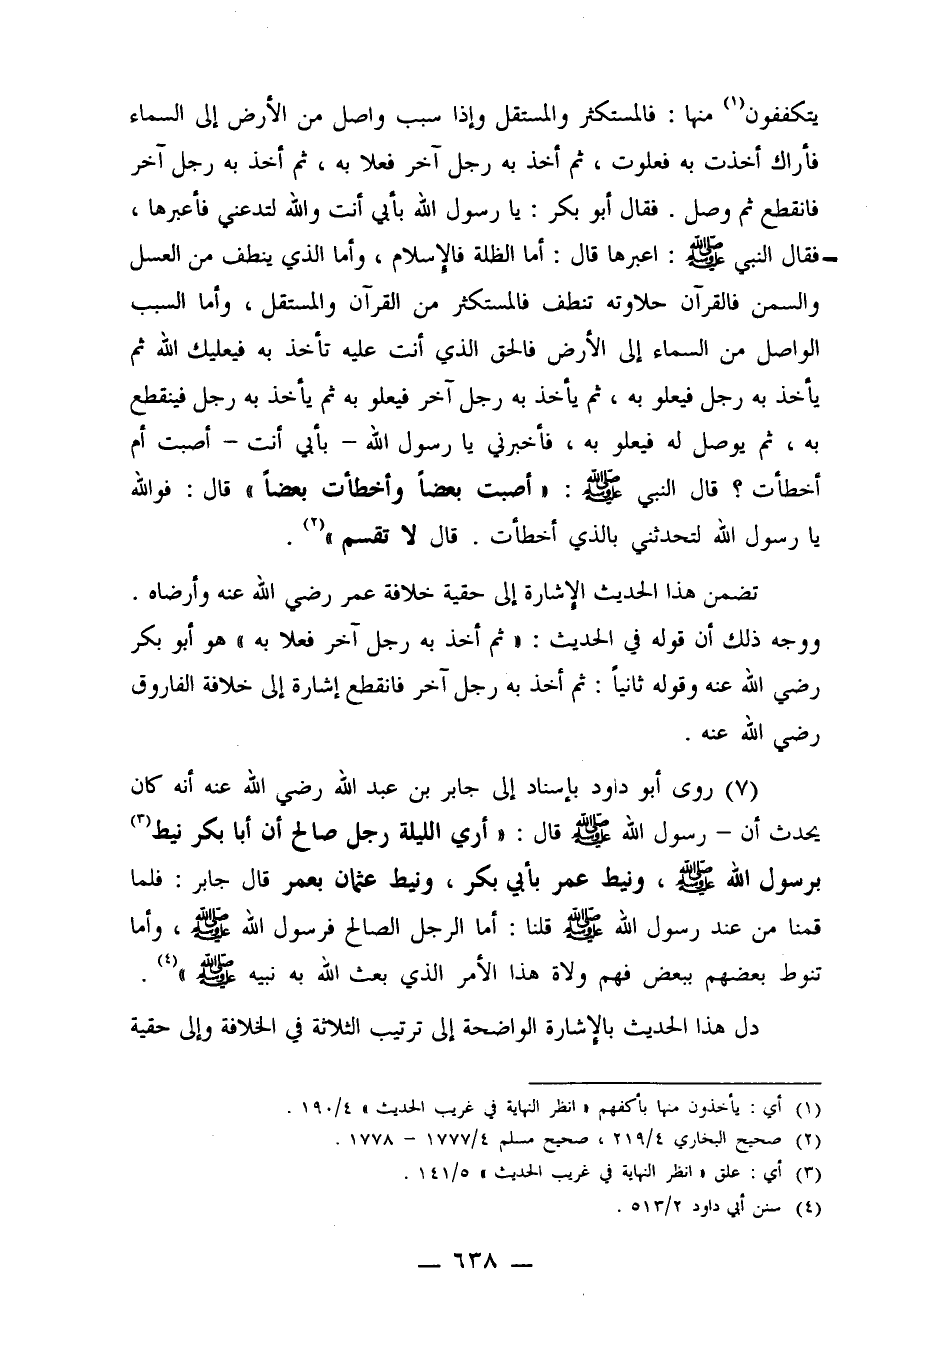 يتكففون(١) منها : فالمستكثر والمستقل وإذا سبب واصل من الأرض إلى السماء
فأراك أخذت به فعلوت ، ثم أخذ به رجل آخر فعلا به ، ثم أخذ به رجل آخر
فانقطع ثم وصل . فقال أبو بكر : يا رسول الله بأبي أنت والله لتدعني فأعبرها ،
فقال النبي ﷺ : اعبرها قال : أما الظلة فالإسلام ، وأما الذي ينطف من العسل
والسمن فالقرآن حلاوته تنطف فالمستكثر من القرآن والمستقل ، وأما السبب
الواصل من السماء إلى الأرض فالحق الذي أنت عليه تأخذ به فيعليك الله ثم
يأخذ به رجل فيعلو به ، ثم يأخذ به رجل آخر فيعلو به ثم يأخذ به رجل فينقطع
به ، ثم يوصل له فيعلو به ، فأخبرني يا رسول الله – بأبي أنت – أصبت أم
أخطأت ؟ قال النبي ﷺ : « أصبت بعضاً وأخطأت بعضاً » قال : فوالله
يا رسول الله لتحدثني بالذي أخطأت . قال لا تقسم »(٢) .
تضمن هذا الحديث الإشارة إلى حقية خلافة عمر رضي الله عنه وأرضاه .
ووجه ذلك أن قوله في الحديث : « ثم أخذ به رجل آخر فعلا به » هو أبو بكر
رضي الله عنه وقوله ثانياً : ثم أخذ به رجل آخر فانقطع إشارة إلى خلافة الفاروق
رضي الله عنه .
(٧) روى أبو داود بإسناد إلى جابر بن عبد الله رضي الله عنه أنه كان
يحدث أن – رسول الله ﷺ قال : « أري الليلة رجل صالح أن أبا بكر نيط(٣)
برسول الله ﷺ ، ونيط عمر بأبي بكر ، ونيط عثمان بعمر قال جابر : فلما
قمنا من عند رسول الله ﷺ قلنا : أما الرجل الصالح فرسول الله ﷺ ، وأما
تنوط بعضهم ببعض فهم ولاة هذا الأمر الذي بعث الله به نبيه ﷺ »(٤) .
دل هذا الحديث بالإشارة الواضحة إلى ترتيب الثلاثة في الخلافة وإلى حقية
(١) أي : يأخذون منها بأكفهم « انظر النهاية في غريب الحديث » ١٩٠/٤ .
(٢) صحيح البخاري ٢١٩/٤ ، صحيح مسلم ١٧٧٧/٤ – ١٧٧٨ .
(٣) أي : علق « انظر النهاية في غريب الحديث » ١٤١/٥ .
(٤) سنن أبي داود ٥١٣/٢ .
— ٦٣٨ —